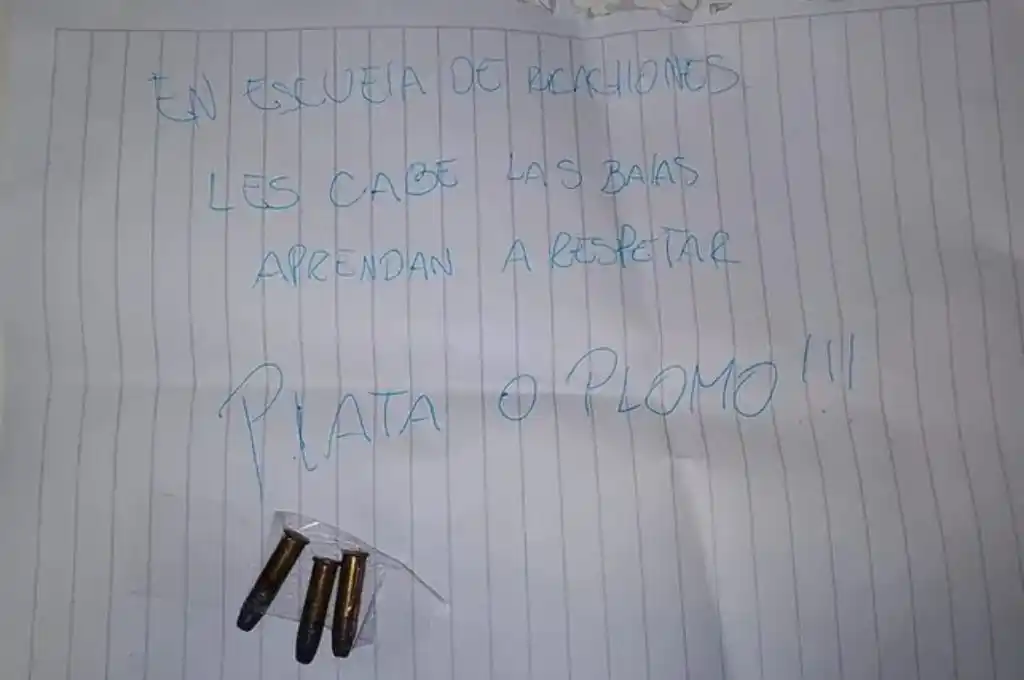 EN ESCUELA DE RICACHONES
LES CABE LAS BALAS
APRENDAN A RESPETAR
PLATA O PLOMO!!!